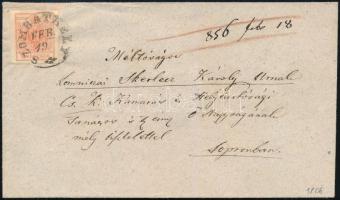 SZOMBATHELY
FEB:
19.
856 febr 18
Méltóságos
Lomniczai Skerlecz Károly Urnak
Cs. K. Kamarás és Helytartósági
Tanácsos
mély tisztelettel Ő Nagyságának
Sopronban.
1856